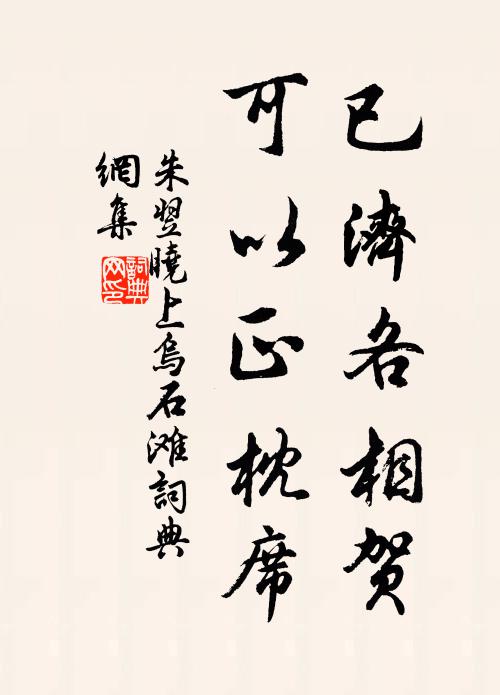 已濟各相賀
可以正枕席
朱翌曉上烏石滩詞典
網集
詞典網印